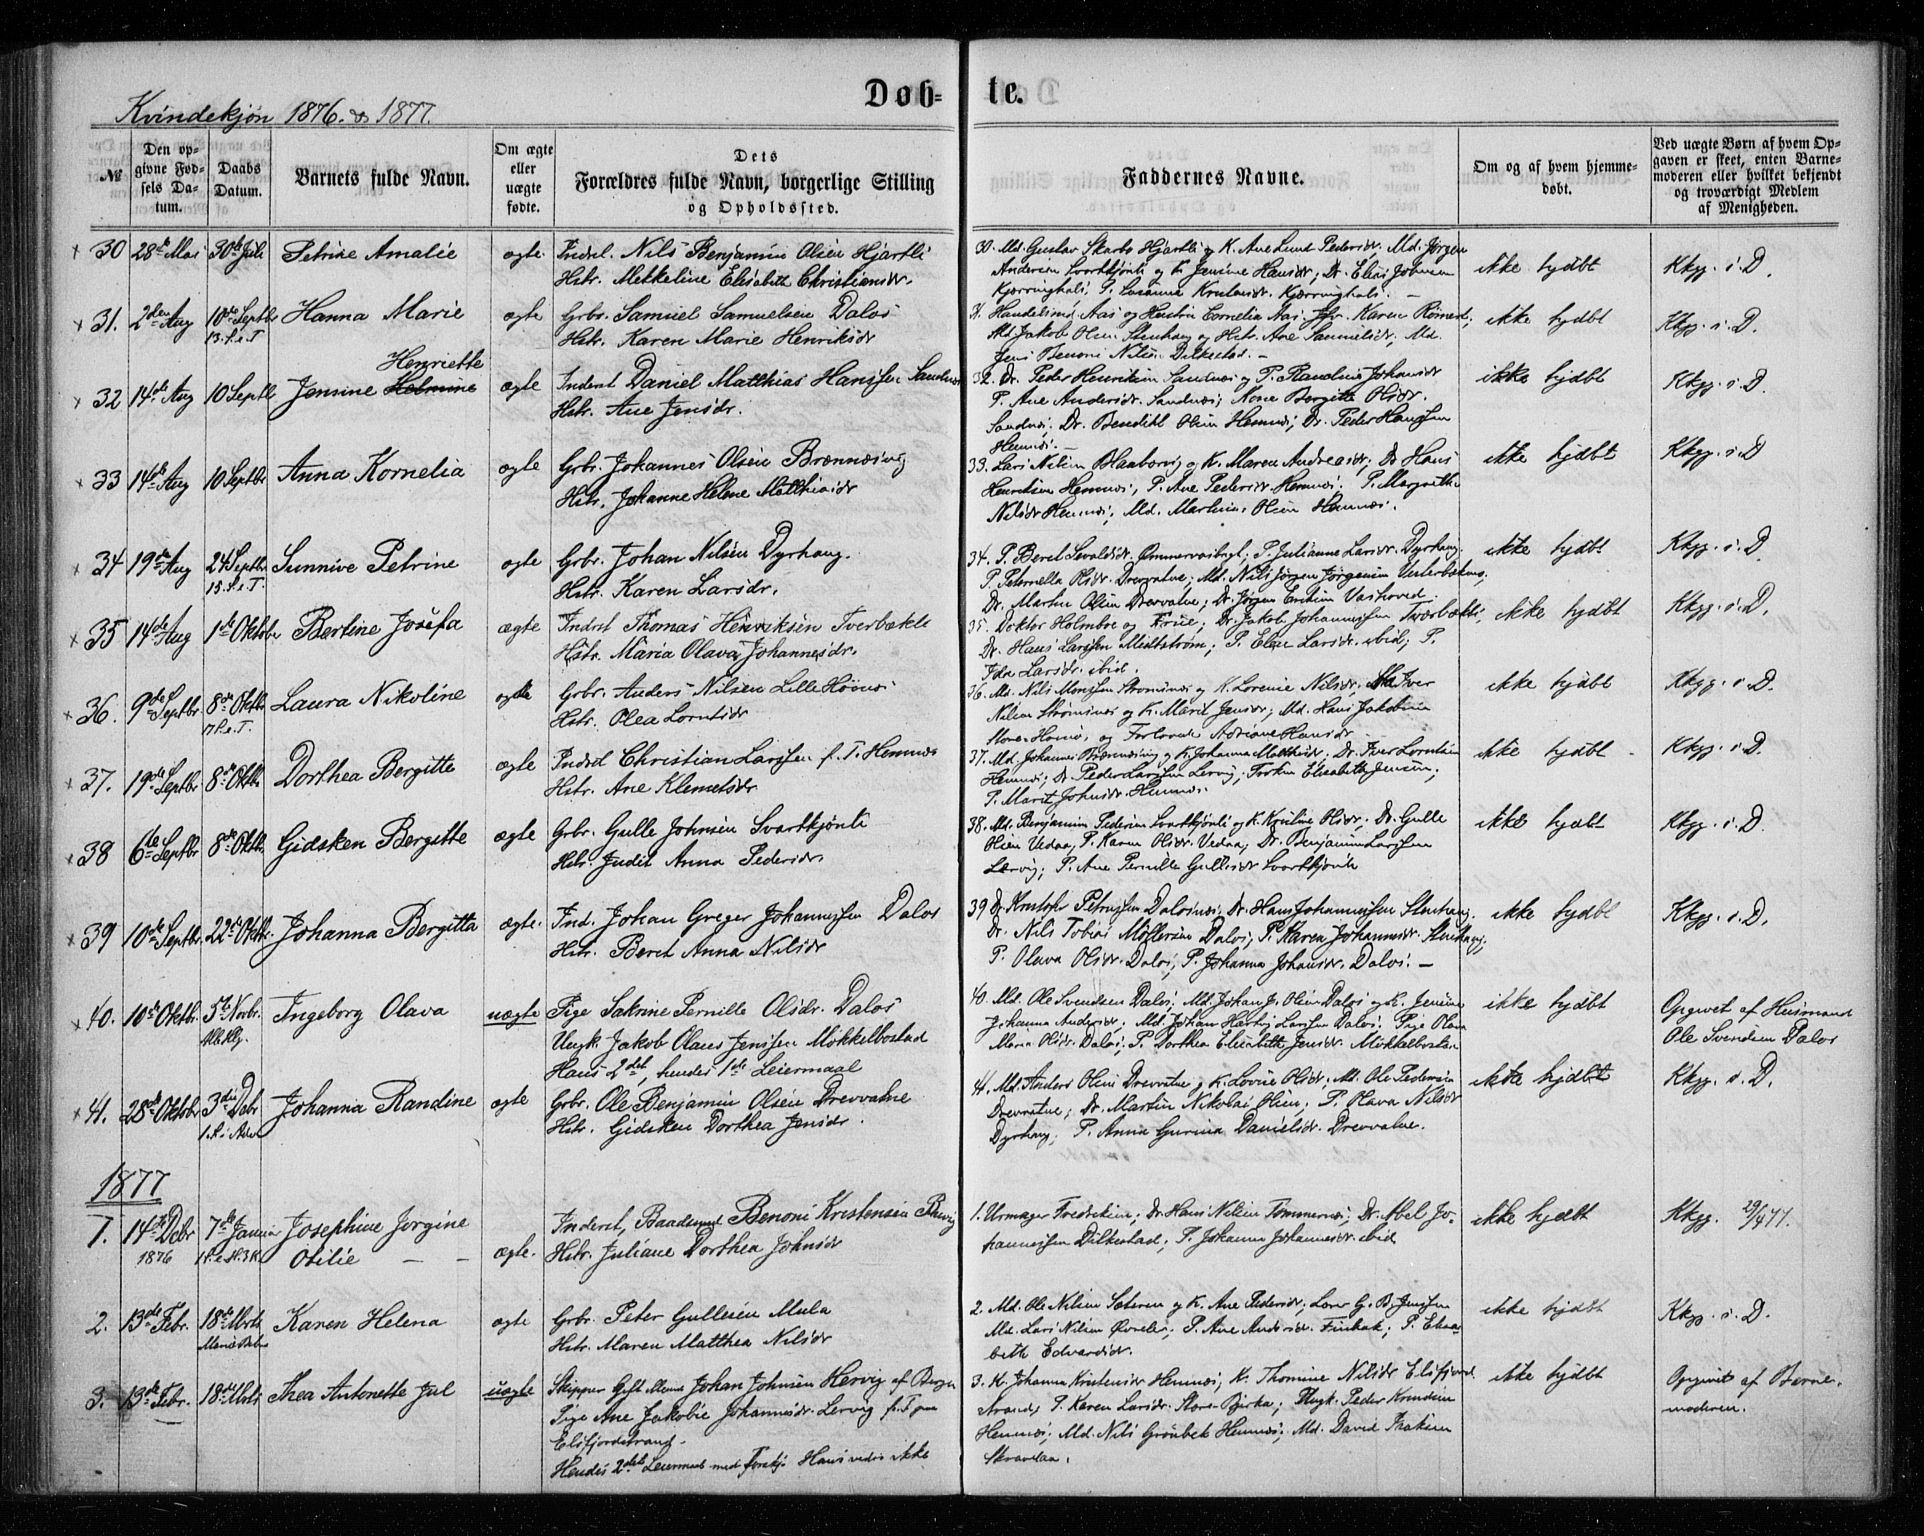 Døb-te.
Kvindekjøn 1876. & 1877.
№
Den op-
givne Fød-
sels Da-
tum.
Daabs
Datum.
Barnets fulde Navn.
Om ægte
eller
uægte
fødte.
Dets
Forældres fulde Navn, borgerlige Stilling
og Opholdssted.
Faddernes Navne.
Om og af hvem hjemme-
døbt.
Ved uægte Børn af hvem Op-
gaven er skeet, enten Barne-
moderen eller hvilket bekjendt
og troværdigt Medlem
af Menigheden.
30 28de Mai 30te Juli Petrine Amalie ægte. Inderst. Nils Benjamin Olsen Hjartli
Hstr. Metheline Elisabeth Christiansdr.
30. Md. Gustav Skarbo Hjartli og K. Ane Lund Pedersdr. Md. Jørgen
Andersen Svartkjønli og K. Jensine Hansdr; Dr. Elias Johnsen
Kjærringhals, P. Susanna Kristensdr. Kjærringhals. —
ikke hjdbt
Kkgg. s. D.
31. 2den Aug 10de Septbr Hanna Marie ægte Grbr. Samuel Samuelsen Dalos
13. S. e. T.
Hstr. Karen Marie Henriksdr
31. Handelsmd. Aas og Hustru Cornelia Aas, Karen
Md Jakob Olsen Stenhaug og Hstr. Ane Samuelsdr. Md.
Jens Benoni Nilsen Dilkestad. —
ikke hjdbt
Kkgg. s. D.
Henriette
32 14de Aug 10 Septb Jensine Helmine ægte Inderst Daniel Matthias Hanssen Sandnes
Hstr. Ane Jensdr.
32. Dr. Peder Henriksen Sandnes og P. Randine Johansdr
P. Ane Andersdr. Sandnes; Kone Bergitte Olsdr.
Sandnes, Dr. Bendikt Olsen Hemnes; Dr. Peder Hanssen
Hemnes. —
ikke hjdbt
Kkgg. s. D.
33 14de Aug 10 Septbr Anna Kornelia ægte Grbr. Johannes Olsen Brennesvig
Hstr. Johanne Helene Matthiasdr
33. Lars Nilsen Blaabærvig og K. Maren Andreasdr, Dr Hans
Henriksen Hemnes, P. Ane Pedersdr. Hemnes. P. Margrethe
Nilsdr Hemnes; Md. Martinus Olsen Hemnes.
ikke hjdbt
Kkgg. s. D
34 19de Aug 24 Septbr Sunnive Petrine ægte Grbr. Johan Nilsen Dyrhaug.
15. S. e. T.
Hstr. Karen Larsdr.
34. P. Beret Sevaldsdr. P. Julianne Larsdr. Dyrhaug.
P. Petornella Olsdr. Drevvatne; Md. Nils Jørgen Jørgensen
Dr. Martin Olsen Drevvatne; Dr. Jørgen
ikke hjdbt
Kkgg. s. D
35 14de Aug 1ste Oktobr Bertine Josefa ægte Inderst Thomas Henriksen Tverbække
Hstr. Maria Olava Johannesdr.
35. Doktor Holmboe og Frue; Dr. Jakob Johannessen Tværbække,
Dr. Hans Larssen P. Elen Larsdr. ibid; P.
Larsdr. ibid.
ikke hjdbt
Kkgg. s. D.
36. 9de Septbr 8de Oktbr Laura Nikoline ægte Grbr. Anders Nilsen Lille Homnes
17 S. e. T.
Hstr. Olea Lorntsdr
36. Md. Nils Monssen Strømsnes og K. Lorense Nilsdr. Md Iver
Nilsen Strømsnes og K. Marit Jensdr; Md. Hans Jakobsen
Store-Homnes, og Forlovede Adriane Hansdr
ikke hjdbt
Kkgg. s. D.
37. 19de Septbr 8de Oktbr. Dorthea Bergitte ægte Inderst Christian Larssen f. T. Hemnes
Hstr. Ane Klemetsdr
37. Md. Johannes Brennesvig og K. Johanna Matthisdr. Dr. Iver Lorntsen
Hemnes; Dr Peder Larssen Lervig; Elisabeth Jensen;
P. Marit Johnsdr. Hemnes.
ikke hjdbt
Kkgg. s. D.
38 6te Septbr 8de Oktbr. Gidsken Bergitte ægte Grbr. Gulle Johnsen Svartkjønli
Hstr. Judit Anna Pedersdr.
38. Md. Benjamin Pedersen Svartkjønli og K. Olsdr; Dr. Gulle
Olsen Vedaa, P. Karen Olsdr. Vedaa, Dr. Benjamin Larssen
Lervig; P. Ane Pernille Gullesdr Svartkjønli
ikke hjdbt
Kkgg. s. D.
39 10de Septbr. 22de Oktbr. Johanna Bergitta ægte. Ind. Johan Greger Johannessen Dalos
Hstr. Beret Anna Nilsdr
39 Dr. Kristofer Petrussen Dalosnes; Dr. Hans Johannessen Stenhaug.
Dr. Nils Tobias Möllersen Dalos; P. Karen Johannesdr. Stenhaug;
P. Olava Olsdr. Dalos; P. Johanna Johansdr. Dalos. —
ikke hjdbt
Kkgg. s. D.
40. 10de Oktbr. 5te Novbr. Ingeborg Olava uægte Pige Sakrine Pernille Olsdr. Dalos
Allehlg.
Ungk. Jakob Olaus Jenssen Mökkelbostad
Hans 2det, hendes 1ste Leiermaal
40. Md. Ole Svendsen Dalos; Md. Johan J. Olsen Dalos og K. Jensine
Johanna Andersdr; Md. Johan Hartvig Larssen Dalos; Pige Olava
Maria Olsdr. Dalos; P. Dorthea Elisabeth Jensdr. Mökkelbostad
ikke hjdbt
Opgivet af Huusmand
Ole Svendsen Dalos
41. 28de Oktbr 3die Debr Johanna Randine ægte Grbr. Ole Benjamin Olsen Drevvatne
1. S. i Adv
Hstr. Gidsken Dorthea Jensdr.
41. Md. Anders Olsen Drevvatne og K. Lovise Olsdr; Md. Ole Pedersen
Drevvatne; Dr. Martin Nikolai Olsen; P. Olava Nilsdr
Dyrhaug; P. Anna Gurina Danielsdr. Drevvatne.
ikke hjdbt
Kkgg. s. D.
1877
1. 14de Debr 7de Januar Josephine Jorgine Inderst, Baadsmd Benoni Kristensen
1876 1 S. e. H. 3 K. Otilie — — ægte. Hstr. Juliane Dorthea Johnsdr
1. Urmager Fredriksen; Dr. Hans Nilsen Tømmernes; Dr. Abel Jo-
hannessen Dilkestad; P. Johanna Johannesdr ibid
ikke hjdbt
Kkgg. 29/4 77.
2. 13de Febr. 18de Marts Karen Helena ægte Grbr. Peter Gullesen Mula
Hstr. Maren Matthea Nilsdr
2. Md. Ole Nilsen Sæteren og K. Ane Pedersdr; Lærer G. B. Jenssen
Md. Lars Nilsen P. Ane Andersdr. Finbak; P. Elisa-
beth Edvardsdr.
ikke hjdbt
Kkgg. s. D.
3. 13de Febr. 18de Marts Thea Antonette Jul uægte Skipper Gift Mand Johan Johnsen Hervig af Bergen
Pige Ane Jakobie Johannesdr. Lervig f. T. paa
Elsfjordstrand.
Hendes 2det Leiermaal med forskj. Hans vides ikke
3. K. Johanna Kristensdr Hemnes; K. Thomine Nilsdr Elsfjord-
strand; P. Karen Larsdr. Store-Bjerka; Ungk. Peder Knudsen
Hemnes; Md. Nils Grönbek Hemnes; Md. David Isaksen
ikke hjdbt
Opgivet af Barne-
moderen.